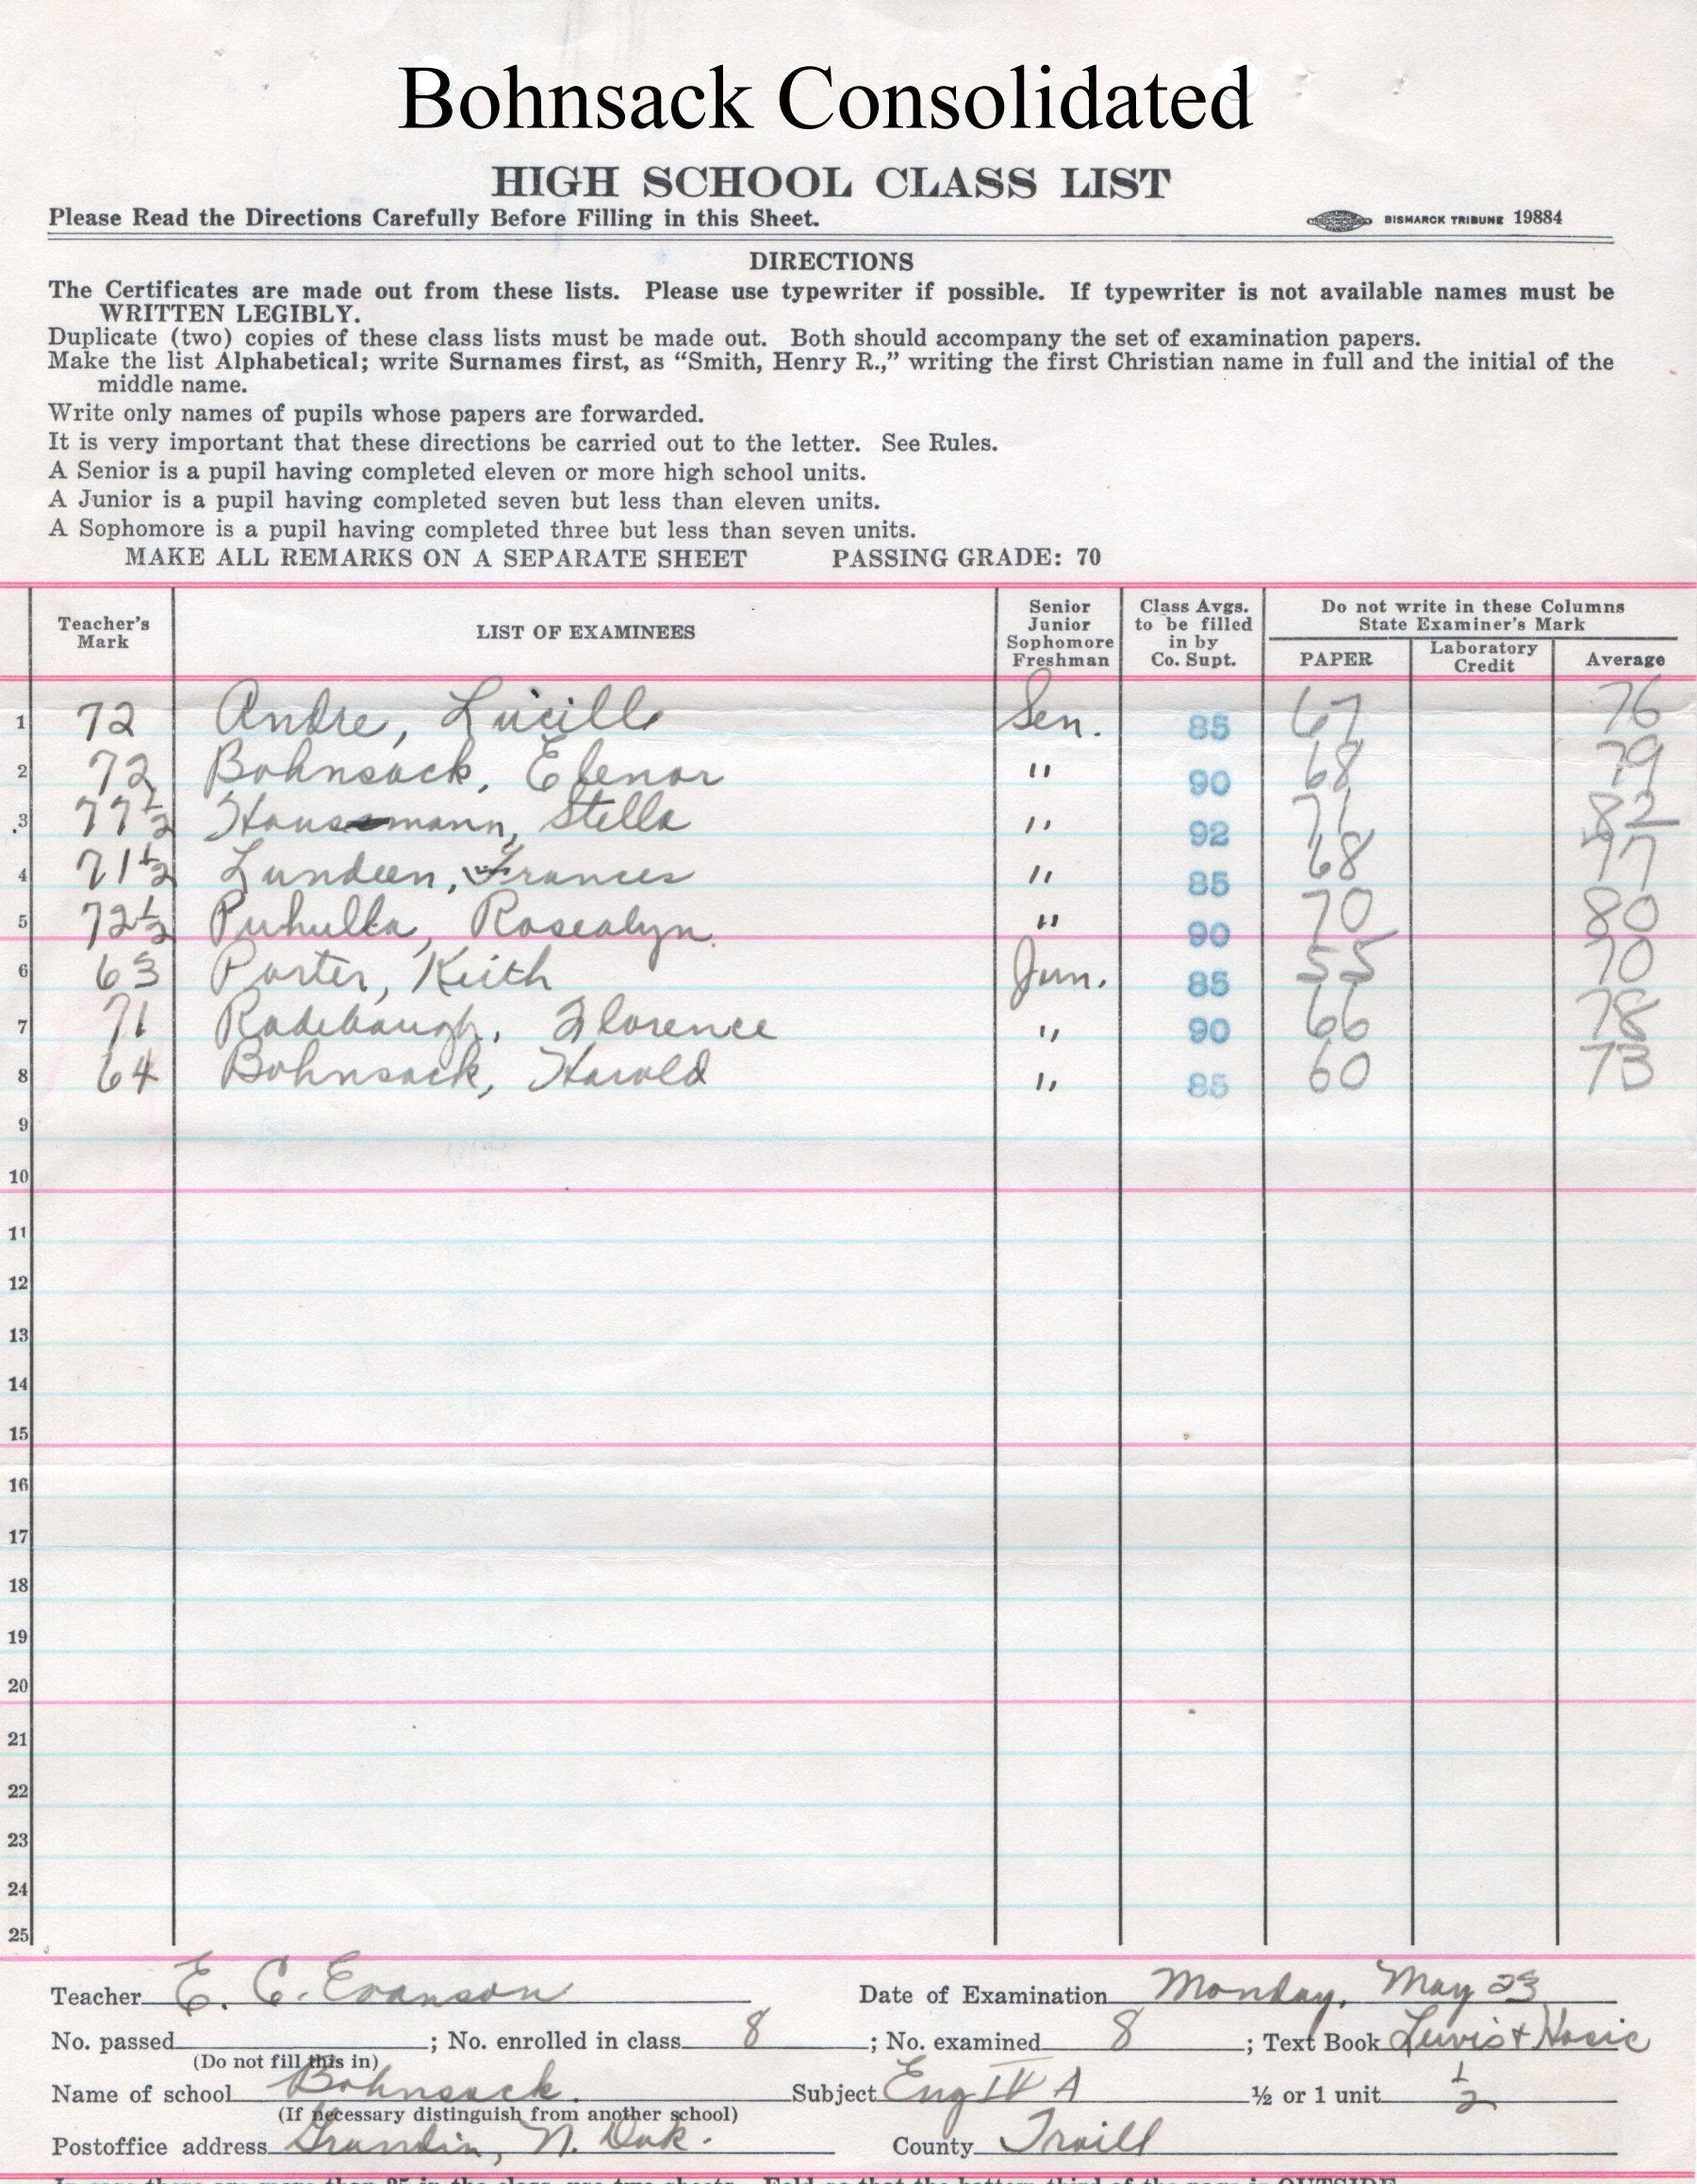 Bohnsack Consolidated
HIGH SCHOOL CLASS LIST
Please Read the Directions Carefully Before Filling in this Sheet. BISMARCK TRIBUNE 19884
DIRECTIONS
The Certificates are made out from these lists. Please use typewriter if possible. If typewriter is not available names must be
WRITTEN LEGIBLY.
Duplicate (two) copies of these class lists must be made out. Both should accompany the set of examination papers.
Make the list Alphabetical; write Surnames first, as “Smith, Henry R.,” writing the first Christian name in full and the initial of the
middle name.
Write only names of pupils whose papers are forwarded.
It is very important that these directions be carried out to the letter. See Rules.
A Senior is a pupil having completed eleven or more high school units.
A Junior is a pupil having completed seven but less than eleven units.
A Sophomore is a pupil having completed three but less than seven units.
MAKE ALL REMARKS ON A SEPARATE SHEET PASSING GRADE: 70
Teacher's Mark LIST OF EXAMINEES Senior Junior Sophomore Freshman Class Avgs. to be filled in by Co. Supt. Do not write in these Columns State Examiner's Mark PAPER Laboratory Credit Average
1 72 Andre, Lucille Sen. 85 67 76
2 72 Bohnsack, Elenor " 90 68 79
3 77 1/2 Hausmann, Stella " 92 71 82
4 71 1/2 Lundeen, Frances " 85 68 77
5 72 1/2 Puhulla, Rosealyn " 90 70 80
6 63 Porter, Keith Jun. 85 55 70
7 71 Radebaugh, Florence " 90 66 78
8 64 Bohnsack, Harold " 85 60 73
9
10
11
12
13
14
15
16
17
18
19
20
21
22
23
24
25
Teacher E. C. Evanson Date of Examination Monday, May 23
No. passed ; No. enrolled in class 8 ; No. examined 8 ; Text Book Lewis + Hosic
(Do not fill this in)
Name of school Bohnsack. Subject Eng IV A ½ or 1 unit 1/2
(If necessary distinguish from another school)
Postoffice address Grandin, N. Dak. County Traill
In case there are more than 25 in the class, use two sheets. Fold so that the bottom third of the page is OUTSIDE.